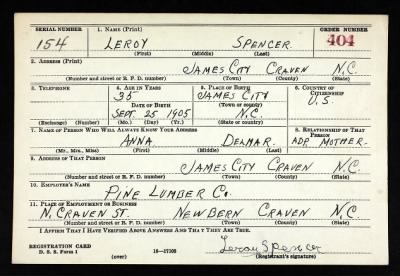 SERIAL NUMBER 1. NAME (Print) ORDER NUMBER
154 LEROY SPENCER 404
(First) (Middle) (Last)
2. ADDRESS (Print)
JAMES CITY CRAVEN N.C.
(Number and street or R. F. D. number) (Town) (County) (State)
3. TELEPHONE 4. AGE IN YEARS 5. PLACE OF BIRTH 6. COUNTRY OF CITIZENSHIP
35 JAMES CITY U.S.
DATE OF BIRTH (Town or county)
SEPT. 25 1905 N.C.
(Exchange) (Number) (Mo.) (Day) (Yr.) (State or country)
7. NAME OF PERSON WHO WILL ALWAYS KNOW YOUR ADDRESS 8. RELATIONSHIP OF THAT PERSON
ANNA DELMAR ADP. MOTHER.
(Mr., Mrs., Miss) (First) (Middle) (Last)
9. ADDRESS OF THAT PERSON
JAMES CITY CRAVEN N.C.
(Number and street or R. F. D. number) (Town) (County) (State)
10. EMPLOYER'S NAME
PINE LUMBER Co.
11. PLACE OF EMPLOYMENT OR BUSINESS
N. CRAVEN ST. NEW BERN CRAVEN N.C.
(Number and street or R. F. D. number) (Town) (County) (State)
I AFFIRM THAT I HAVE VERIFIED ABOVE ANSWERS AND THAT THEY ARE TRUE.
REGISTRATION CARD
D. S. S. Form 1 16-17105 Leroy Spencer
(over) (Registrant's signature)